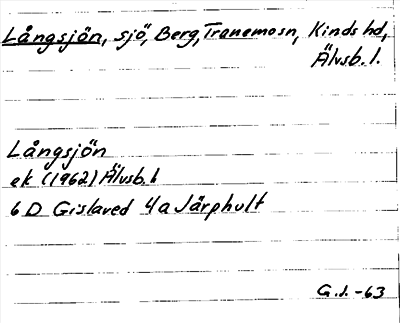 Långsjön, sjö, Berg, Tranemosn, Kinds hd,
Älvsb. l.
Långsjön
ek (1962) Älvsb. l
6 D Gislaved 4a Järphult
G.J. -63